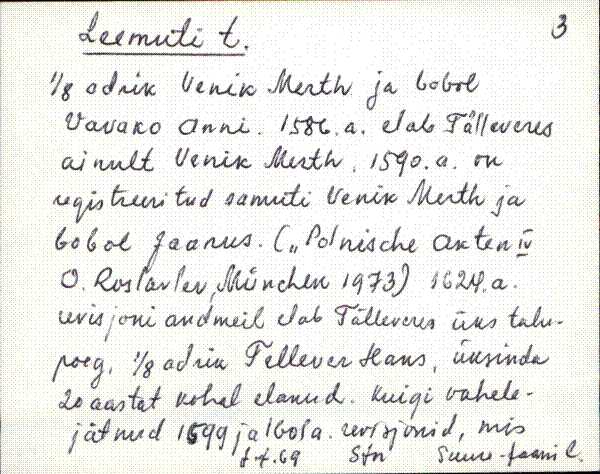 Leemuti t.
3
1/8 adrik Venik Merth ja bobol
Vavako Anni. 1586.a. elab Tälleveres
ainult Venik Merth. 1590.a. on
registreeritud samuti Venik Merth ja
bobol Jaanus. („Polnische Akten IV
O. Roslavlev, München 1973) 1624.a.
revisjoni andmeil elab Tälleveres üks talu-
poeg, 1/8 adrik Fellever Hans, üksinda
20 aastat kohal elanud. Kuigi vahele-
jätnud 1599 ja 1601a. revisjonid, mis
Stn Suure-Jaani